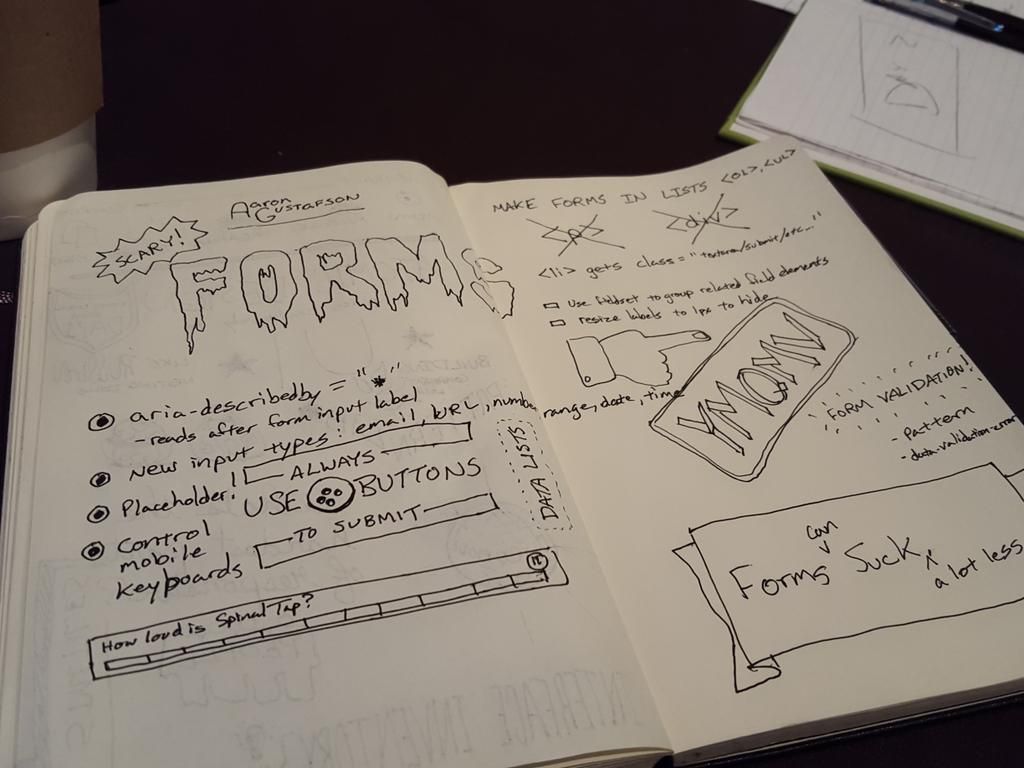 Aaron
Gustafson
SCARY!
FORMS
aria-describedby = "*"
- reads after form input label
New input types: email, URL, number, range, date, time
Placeholder!
Control
mobile
keyboards
ALWAYS
USE BUTTONS
TO SUBMIT
DATA LISTS
How loud is Spinal Tap?
11
MAKE FORMS IN LISTS <OL>, <UL>
<p> <div>
<li> gets class="text/submit/etc..."
Use fieldset to group related field elements
resize labels to 1px to hide
YMOMV
FORM VALIDATION!
- Pattern
- data-validation-error
Forms can Suck a lot less